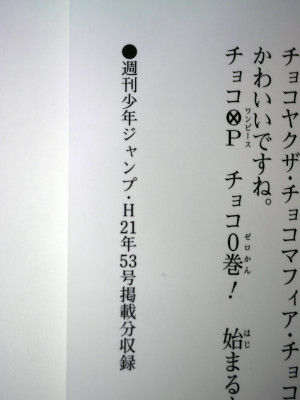 チョコヤクザ・チョコマフィア・チョコ
かわいいですね。
チョコ⊗P チョコ0巻! 始まる
ワンピース
ゼロかん
はじ
●週刊少年ジャンプ・H21年53号掲載分収録